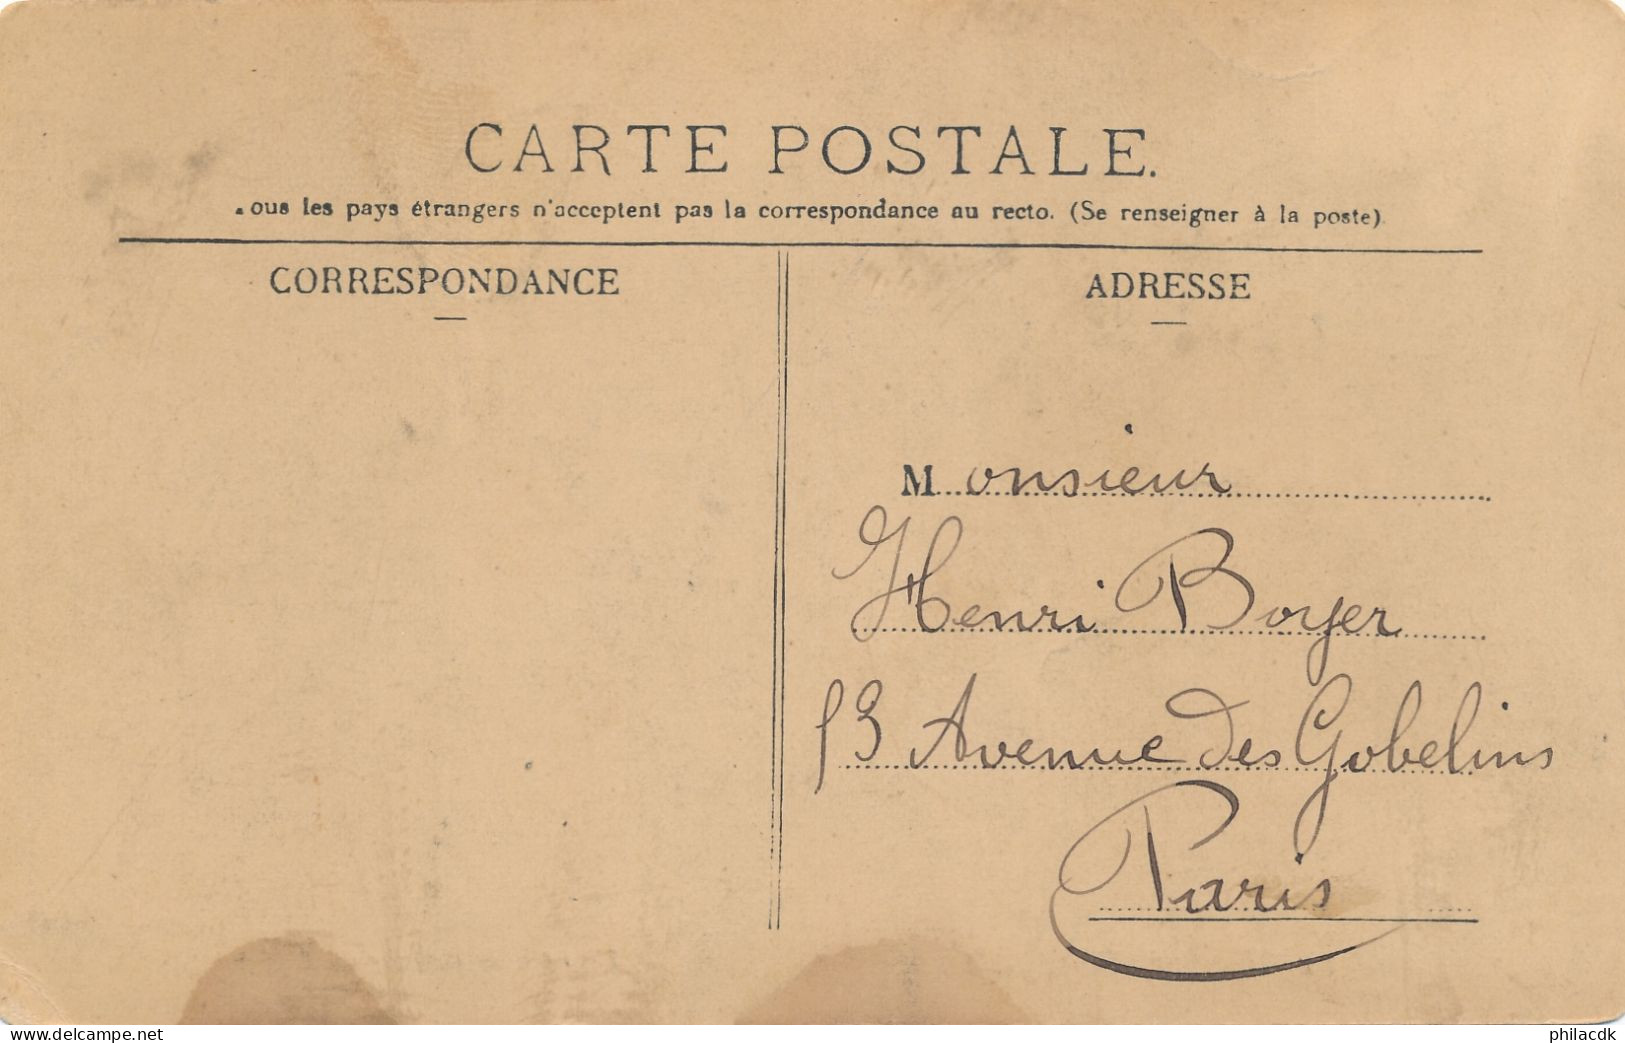 CARTE POSTALE.
ous les pays étrangers n'acceptent pas la correspondance au recto. (Se renseigner à la poste)
CORRESPONDANCE
ADRESSE
Monsieur
Henri Boyer
13 Avenue des Gobelins
Paris
www.delcampe.net
philacdk